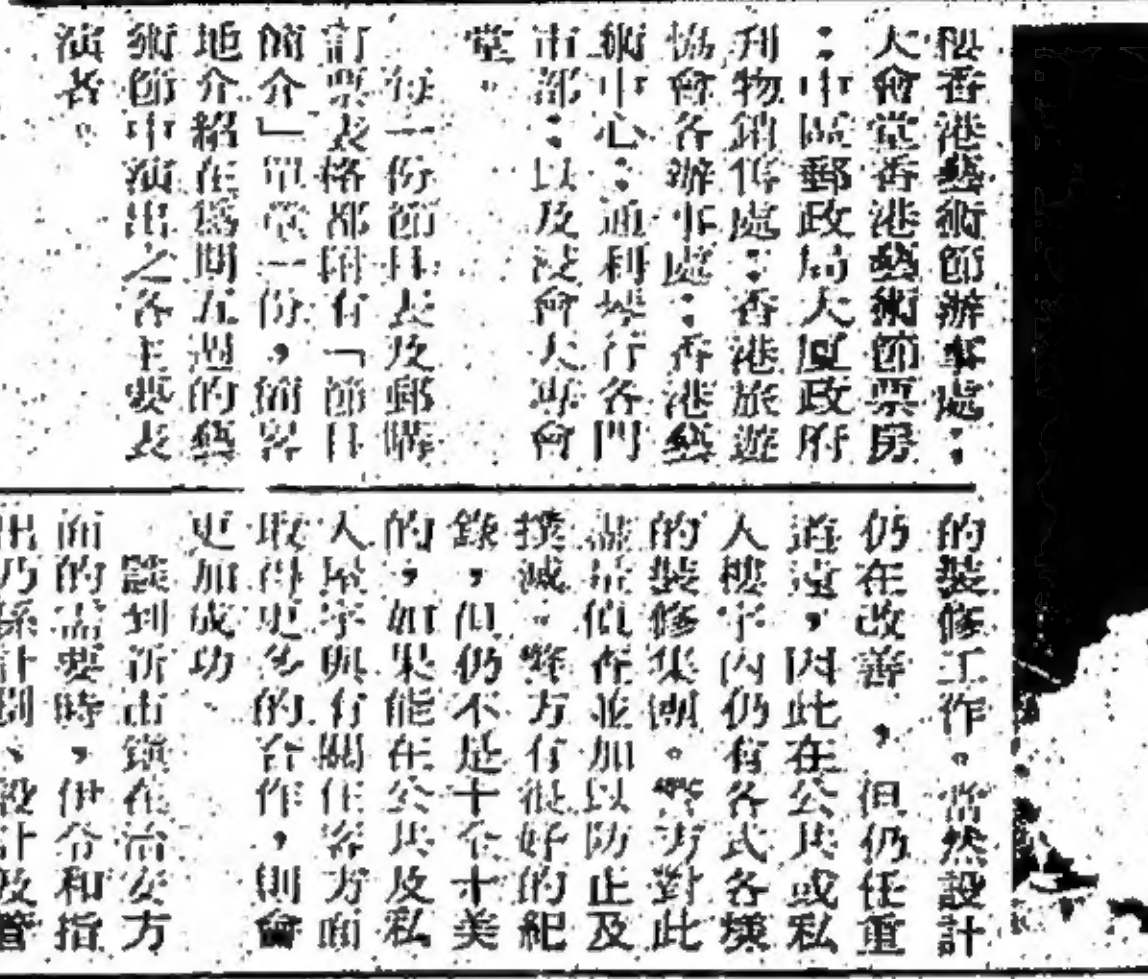 樓香港藝術節辦事處；
大會堂香港藝術節票房
；中區郵政局大厦政府
刊物銷售處；香港旅遊
協會各辦事處；香港藝
術中心；通利琴行各門
市部；以及浸會大專會
堂。
每一份節目表及郵購
訂票表格都附有「節目
簡介」單張一份，簡畧
地介紹在爲期五週的藝
術節中演出之各主要表
演者。
的裝修工作。當然設計
仍在改善，但仍任重
道遠，因此在公共或私
人樓宇內仍有各式各樣
的裝修集團。警方對此
部署偵查並加以防止及
撲滅。警方有很好的紀
錄，但仍不是十全十美
的，如果能在公共及私
人屋宇與有關住客方面
取得更多的合作，則會
更加成功。
談到新市鎮在治安方
面的需要時，伊令和指
出乃係計劃、設計及管